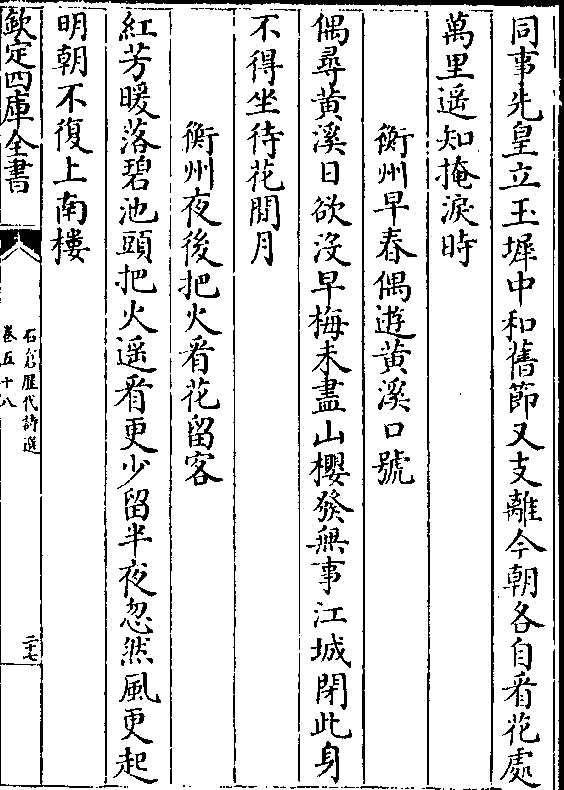 同事先皇立玉墀中和舊節又支離今朝各自看花處
萬里遥知掩淚時
衡州早春偶遊黄溪口號
偶尋黄溪日欲沒早梅未盡山櫻發無事江城閉此身
不得坐待花間月
衡州夜後把火看花留客
紅芳暖落碧池頭把火遥看更少留半夜忽然風更起
明朝不復上南樓
欽定四庫全書
石倉歷代詩選
卷五十八
二十七